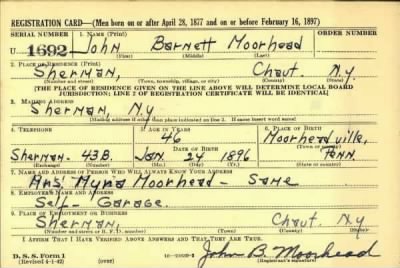 REGISTRATION CARD—(Men born on or after April 28, 1877 and on or before February 16, 1897)
SERIAL NUMBER 1. NAME (Print) ORDER NUMBER
U 1692 John Barnett Moorhead
(First) (Middle) (Last)
2. PLACE OF RESIDENCE (Print)
Sherman, Chaut. N.y.
(Number and street) (Town, township, village, or city) (County) (State)
[THE PLACE OF RESIDENCE GIVEN ON THE LINE ABOVE WILL DETERMINE LOCAL BOARD
JURISDICTION; LINE 2 OF REGISTRATION CERTIFICATE WILL BE IDENTICAL]
3. MAILING ADDRESS
Sherman, N.y
[Mailing address if other than place indicated on line 2. If same insert word same]
4. TELEPHONE 5. AGE IN YEARS 6. PLACE OF BIRTH
46 Moorheadville,
DATE OF BIRTH (Town or county)
Sherman. 43B. Jan. 24 1896 Penn.
(Exchange) (Number) (Mo.) (Day) (Yr.) (State or country)
7. NAME AND ADDRESS OF PERSON WHO WILL ALWAYS KNOW YOUR ADDRESS
Mrs. Myra Moorhead - Same
8. EMPLOYER'S NAME AND ADDRESS
Self- Garage.
9. PLACE OF EMPLOYMENT OR BUSINESS
Sherman, Chaut. N.y
(Number and street or R. F. D. number) (Town) (County) (State)
I AFFIRM THAT I HAVE VERIFIED ABOVE ANSWERS AND THAT THEY ARE TRUE.
D. S. S. Form 1
(Revised 4-1-42) (over) John B. Moorhead
(Registrant's signature)